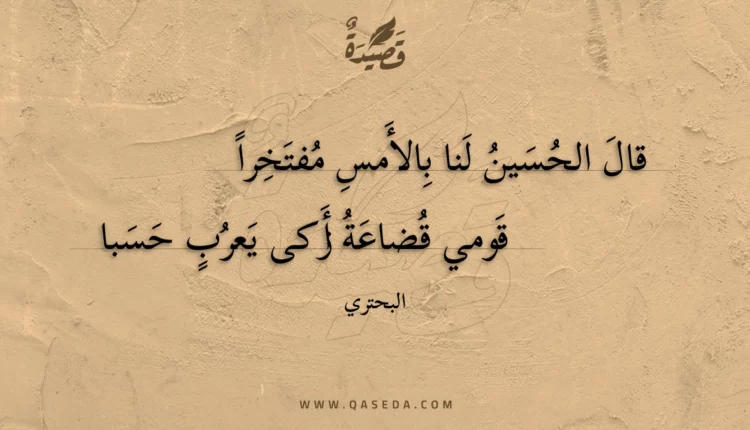 قَصِيدَةٌ
قالَ الحُسَينُ لَنا بِالأَمسِ مُفتَخِراً
قَومي قُضاعَةُ أَزكى يَعرُبٍ حَسَبا
البحتري
WWW.QASEDA.COM